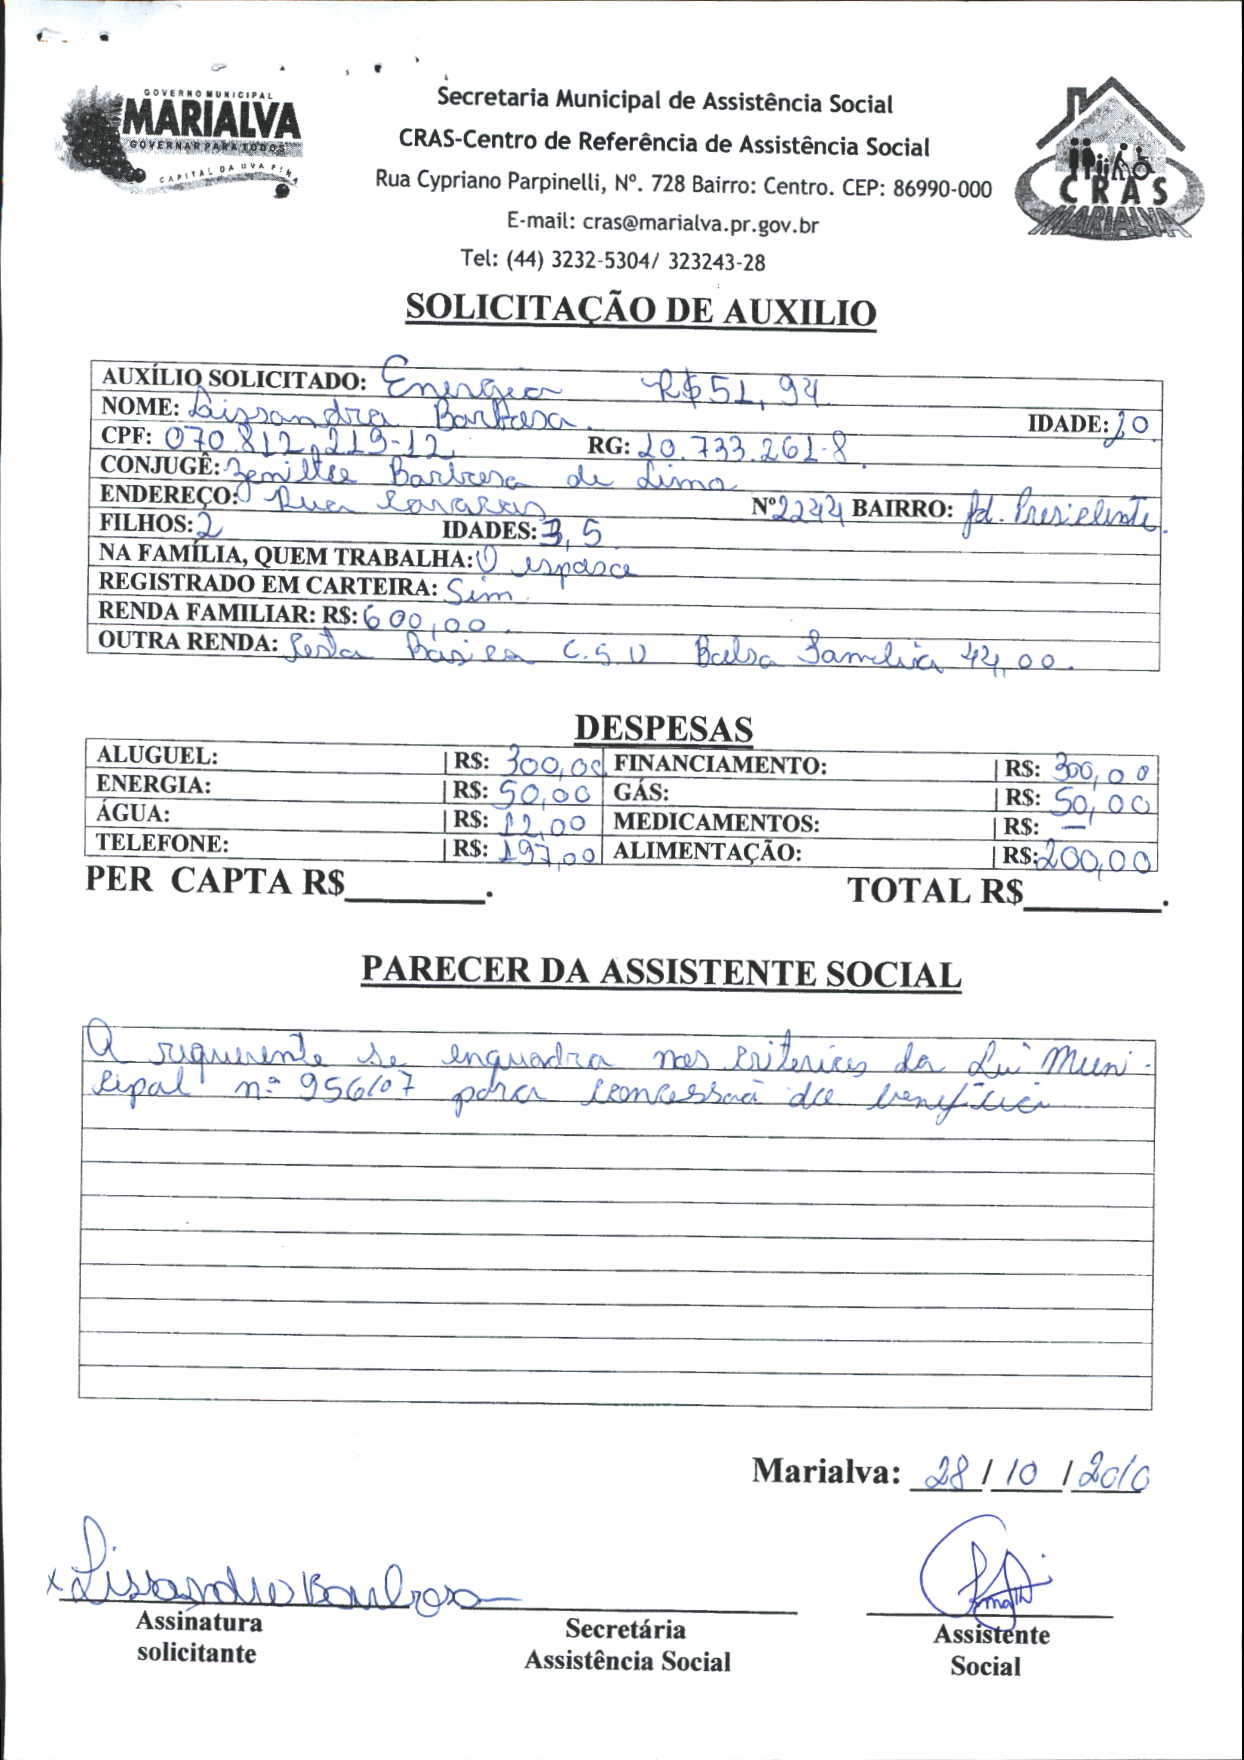 GOVERNO MUNICIPAL
MARIALVA
GOVERNAR PARA TODOS
CAPITAL DA UVA FINA
Secretaria Municipal de Assistência Social
CRAS-Centro de Referência de Assistência Social
Rua Cypriano Parpinelli, Nº. 728 Bairro: Centro. CEP: 86990-000
E-mail: cras@marialva.pr.gov.br
Tel: (44) 3232-5304/ 323243-28
CRAS
MARIALVA
SOLICITAÇÃO DE AUXILIO
AUXÍLIO SOLICITADO: Energia R$ 51,94
NOME: Lissandra Barbosa. IDADE: 20
CPF: 070.812.219-12 RG: 10.733.261-8.
CONJUGÊ: Barbosa de Lima
ENDEREÇO: Rua Caracas Nº 2244 BAIRRO: Jd. Presidente.
FILHOS: 2 IDADES: 3, 5
NA FAMÍLIA, QUEM TRABALHA: O esposo
REGISTRADO EM CARTEIRA: Sim.
RENDA FAMILIAR: R$: 600,00.
OUTRA RENDA: Cesta Básica C.S.U Bolsa Família 44,00.
DESPESAS
ALUGUEL: R$: 300,00 FINANCIAMENTO: R$: 300,00
ENERGIA: R$: 50,00 GÁS: R$: 50,00
ÁGUA: R$: 12,00 MEDICAMENTOS: R$: —
TELEFONE: R$: 197,00 ALIMENTAÇÃO: R$: 200,00
PER CAPTA R$_______. TOTAL R$_______.
PARECER DA ASSISTENTE SOCIAL
A requerente se enquadra nos criterios da Lei Muni-
cipal nº 956/07 para concessão do benefício
Marialva: 28 / 10 / 2010
x Lissandra Barbosa
Assinatura
solicitante
Secretária
Assistência Social
Assistente
Social